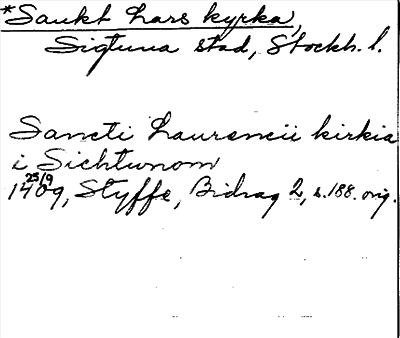 *Sankt Lars kyrka,
Sigtuna stad, Stockh. l.
Sancti Laurencii kirkia
i Sichtunom
25/9
1409, Styffe, Bidrag 2, s. 188. orig.